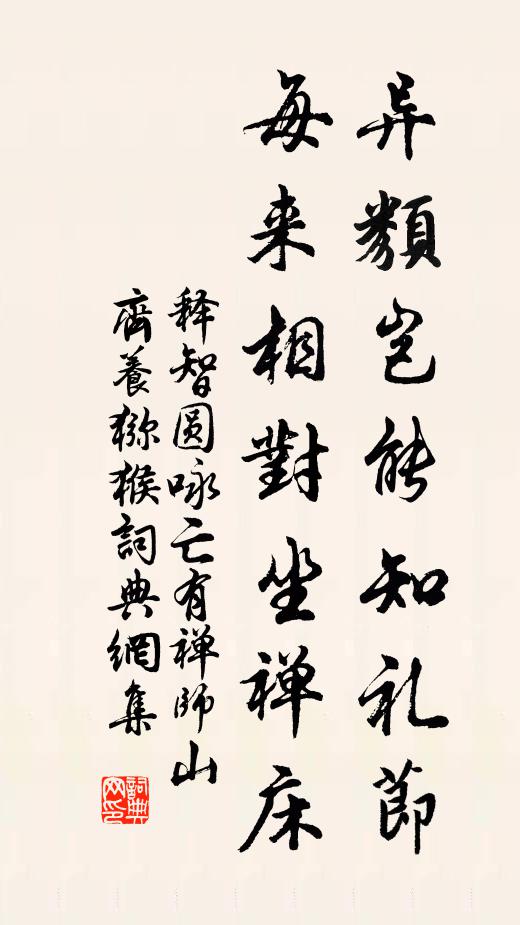 异類岂能知礼節
每来相對坐禅床
释智圆咏亡有禅师山
齊養猕猴詞典網集
詞典
网印